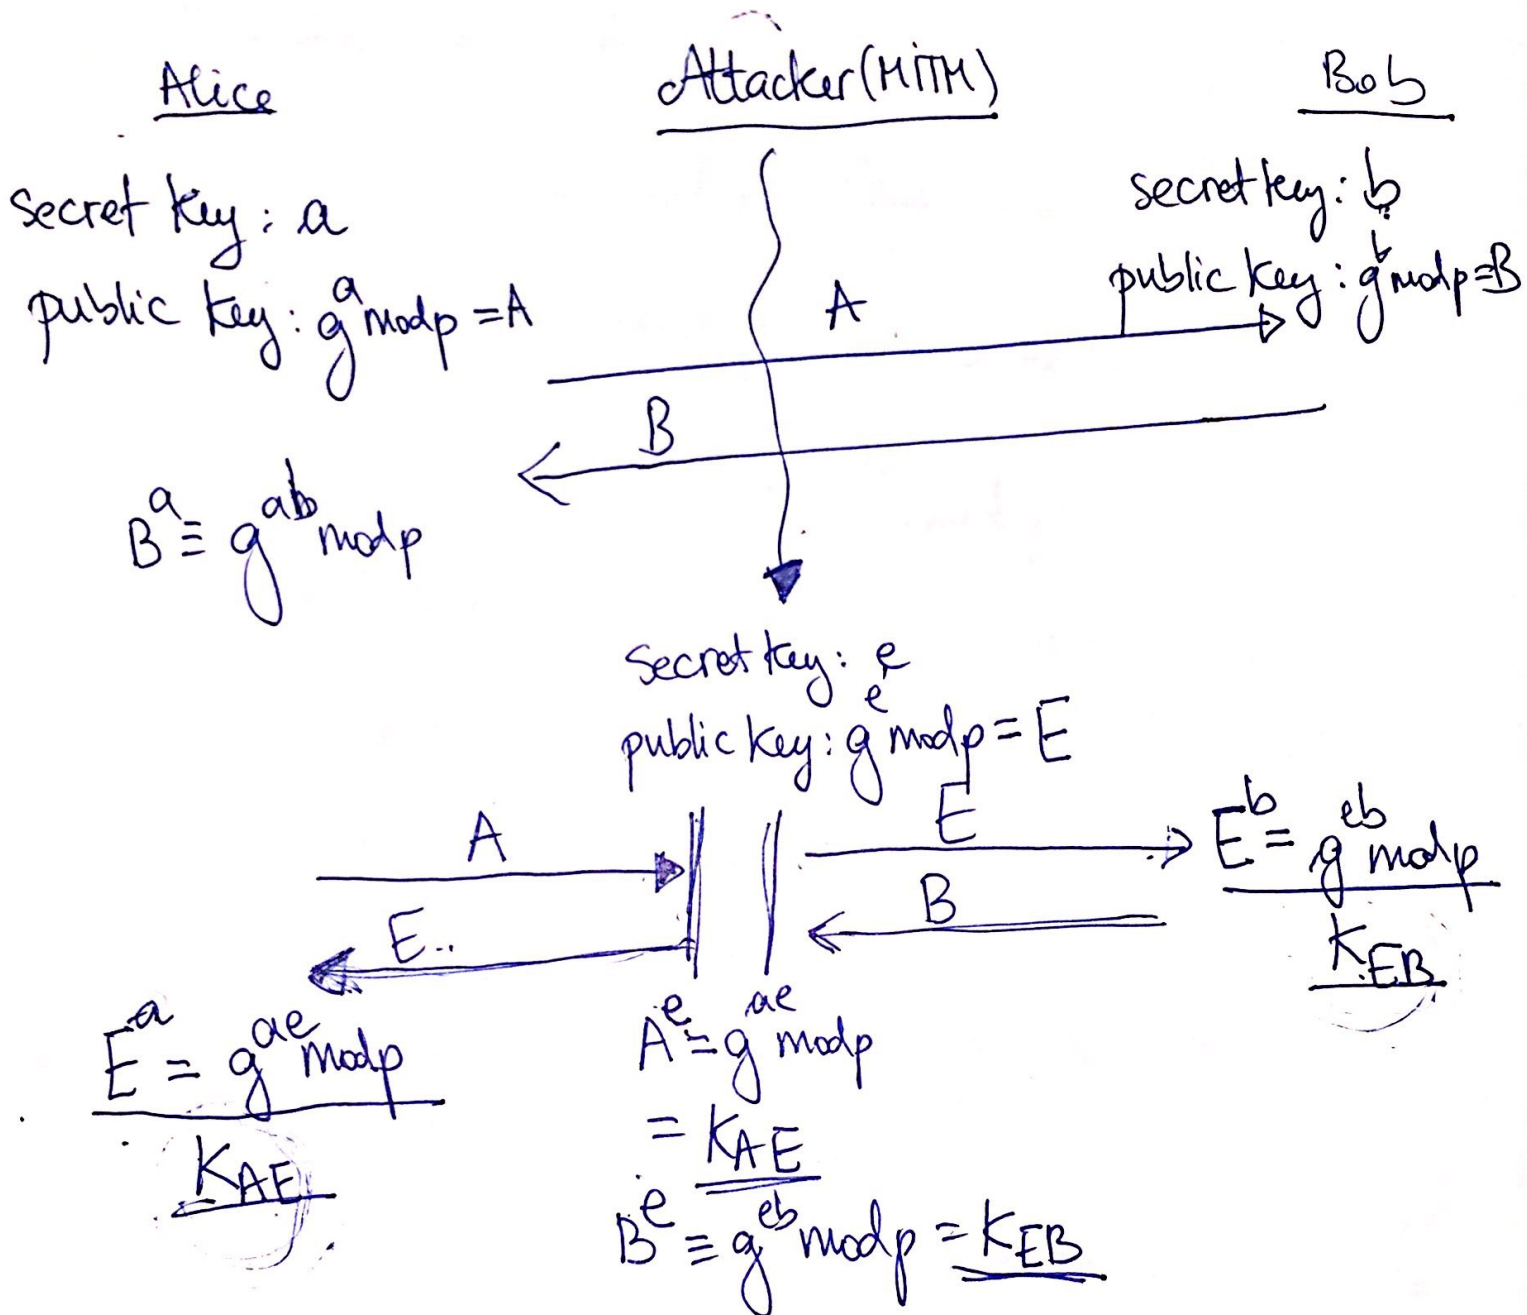 Alice
Attacker (MITM)
Bob
secret key: a
public key: g^a mod p = A
secret key: b
public key: g^b mod p = B
A
B
B^a ≡ g^ab mod p
secret key: e
public key: g^e mod p = E
A
E..
E
B
E^b = g^eb mod p
K_EB
E^a = g^ae mod p
K_AE
A^e = g^ae mod p
= K_AE
B^e ≡ g^eb mod p = K_EB